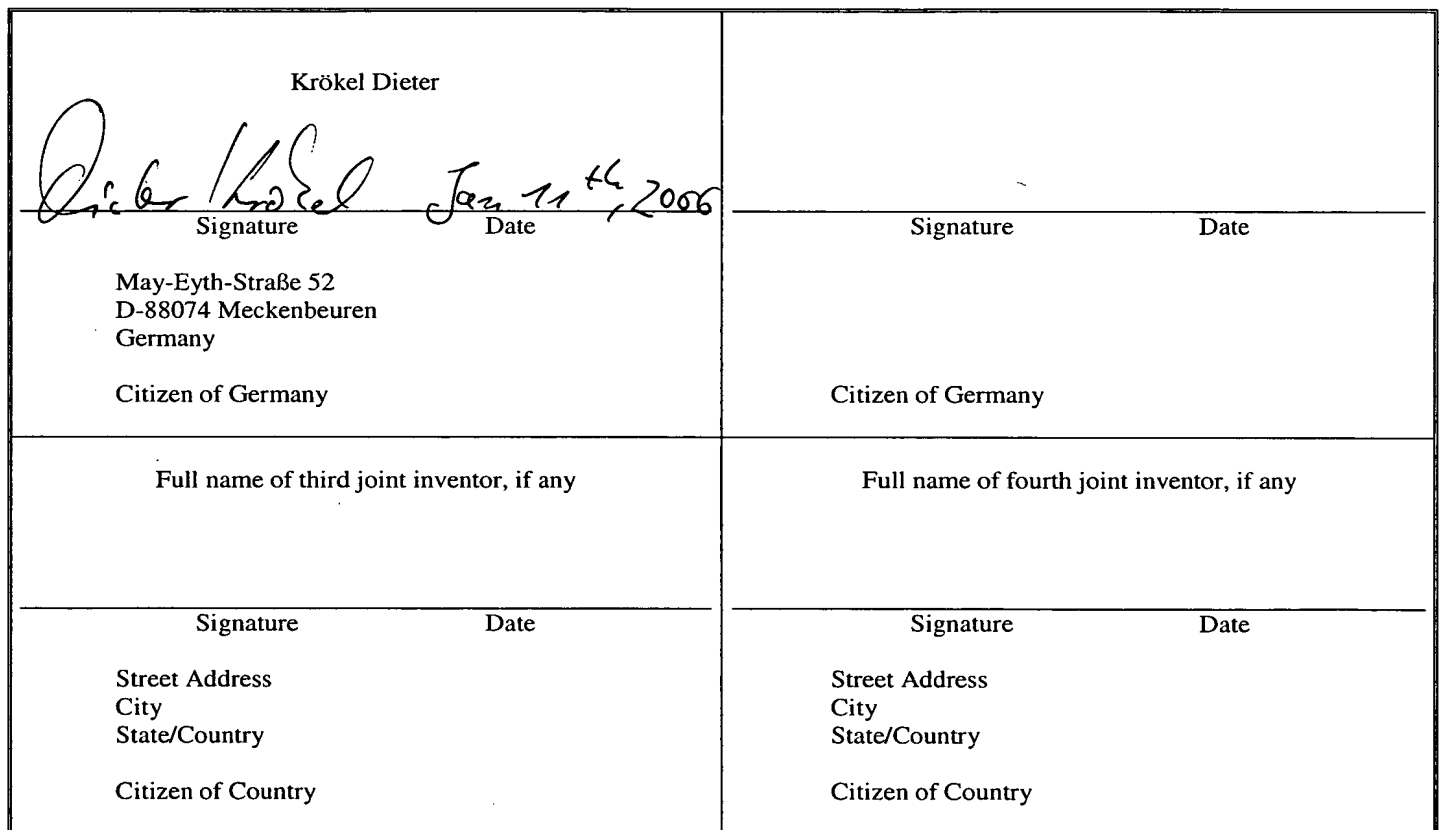 Krökel Dieter
Dieter Krökel Jan 11th, 2006
Signature Date
May-Eyth-Straße 52
D-88074 Meckenbeuren
Germany
Citizen of Germany
Signature Date
Citizen of Germany
Full name of third joint inventor, if any
Signature Date
Street Address
City
State/Country
Citizen of Country
Full name of fourth joint inventor, if any
Signature Date
Street Address
City
State/Country
Citizen of Country